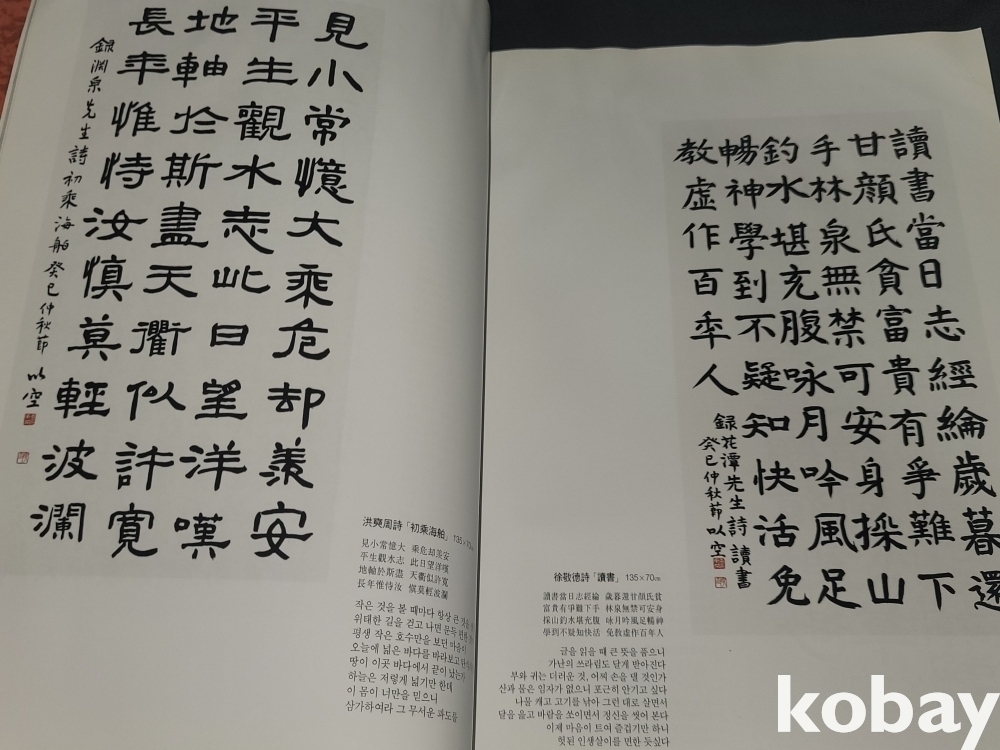 見小常憶大乘危却羨安
平生觀水志此日望洋嘆
地軸於斯盡天衢似許寬
長年惟恃汝慎莫輕波瀾
錄淵泉先生詩初乘海舶癸巳仲秋節 以空
洪奭周詩「初乘海舶」 135×70㎝
見小常憶大 乘危却羨安
平生觀水志 此日望洋嘆
地軸於斯盡 天衢似許寬
長年惟恃汝 愼莫輕波瀾
작은 것을 볼 때마다 항상 큰 것을
위태한 길을 걷고 나면 문득
평생 작은 호수만을 보던 마음이
오늘에 넓은 바다를 바라보고
땅이 이곳 바다에서 끝이 났는가
하늘은 저렇게 넓기만 한데
이 몸이 너만을 믿으니
삼가하여라 그 무서운 파도를
讀書當日志經綸歲暮還
甘顔氏貧富貴有爭難下
手林泉無禁可安身採山
釣水堪充腹咏月吟風足
暢神學到不疑知快活免
教虛作百年人
錄花潭先生詩讀書
癸巳仲秋節以空
徐敬德詩「讀書」 135×70㎝
讀書當日志經綸 歲暮還甘顔氏貧
富貴有爭難下手 林泉無禁可安身
採山釣水堪充腹 咏月吟風足暢神
學到不疑知快活 免教虛作百年人
글을 읽을 때 큰 뜻을 품으니
가난의 쓰라림도 달게 받아진다
부와 귀는 더러운 것, 어찌 손을 댈 것인가
산과 물은 임자가 없으니 포근히 안기고 싶다
나물 캐고 고기를 낚아 그런 대로 살면서
달을 읊고 바람을 쏘이면서 정신을 씻어 본다
이제 마음이 트여 즐겁기만 하니
헛된 인생살이를 면한 듯싶다
kobay